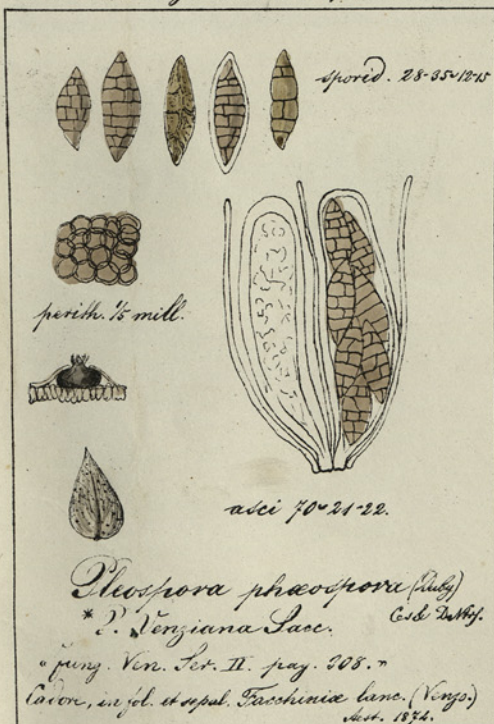 sporid. 28-35~12-15
perith. 1/5 mill.
asci 70~21-22.
Pleospora phæospora (Duby)
Ces & DeNtrs.
* P. Venziana Sacc.
" Fung. Ven. Ser. II. pag. 308. "
Cadore, in fol. et sepal. Facchiniæ lanc. (Venzo.)
Aest. 1874.